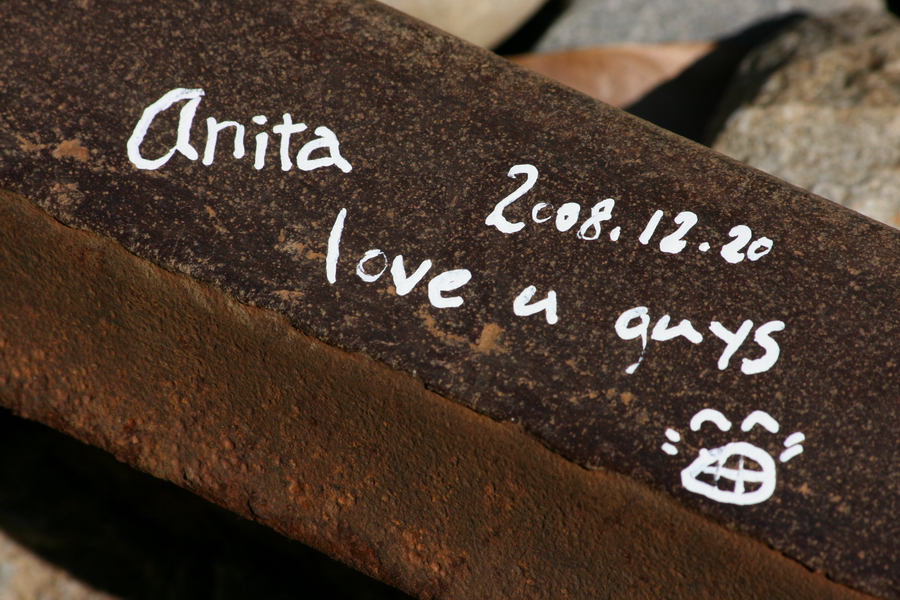 Anita
2008.12.20
love u guys